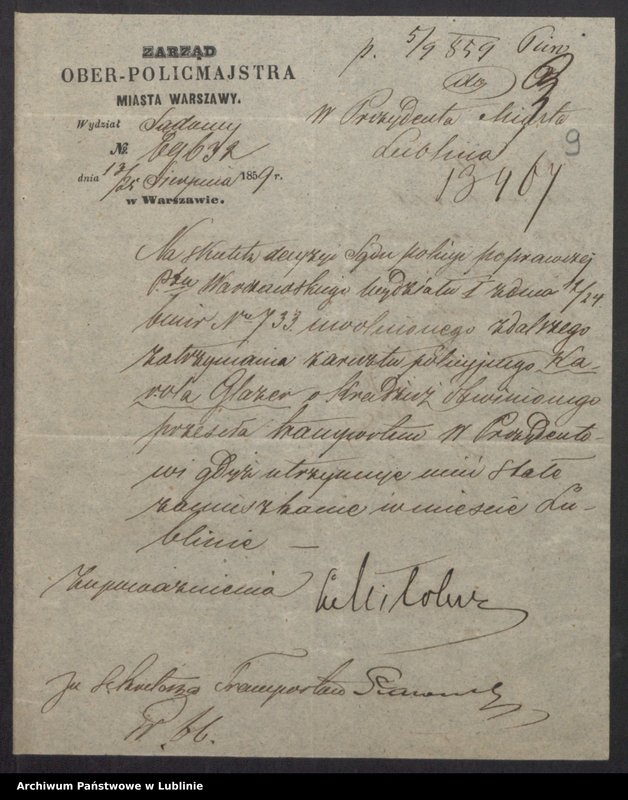 ZARZĄD
OBER-POLICMAJSTRA
MIASTA WARSZAWY.
Wydział Sądowy
№ 69632
dnia 13/25 Sierpnia 1859 r.
w Warszawie.
p. 5/9 859
do
W Prezydenta Miasta
Lublina
9
13467
Na skutek decyzji Sądu policji poprawczej
Ptu Warszawskiego wydziału I z dnia 12/24
b m i r № 733 uwolnionego z dalszego
zatrzymania z aresztu policyjnego Ka-
rola Glazer o kradzież obwinionego
przesyła transportem W Prezydento-
wi gdyż utrzymuje mieć stałe
zamieszkanie w mieście Lu-
blinie —
Z upoważnienia
za Sekretarza Transportów
Archiwum Państwowe w Lublinie